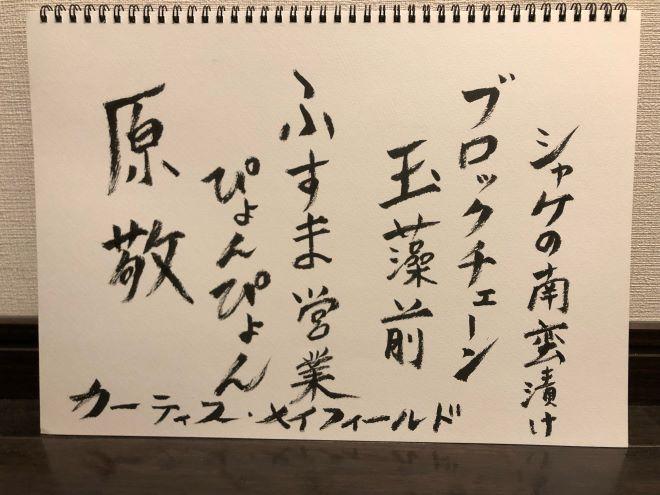 シャケの南蛮漬け
ブロックチェーン
玉藻前
ふすま営業
ぴょんぴょん
原敬
カーティス・メイフィールド